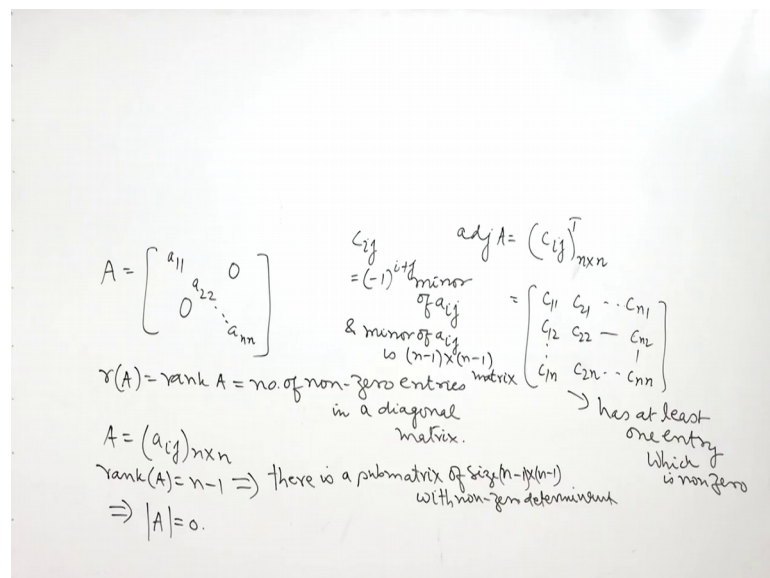 A = [ a11 0
a22
0 ...
ann ]
cij
= (-1)^i+j minor
of aij
& minor of aij
is (n-1)x(n-1)
matrix
adj A = (cij)^T nxn
= [ C11 C21 .. Cn1
C12 C22 — Cn2
⋮
C1n C2n .. Cnn ]
→ has at least
one entry
which
is nonzero
r(A) = rank A = no. of non-zero entries
in a diagonal
matrix.
A = (aij)nxn
rank(A) = n-1 ⇒ there is a submatrix of size (n-1)x(n-1)
with non-zero determinent
⇒ |A| = 0.